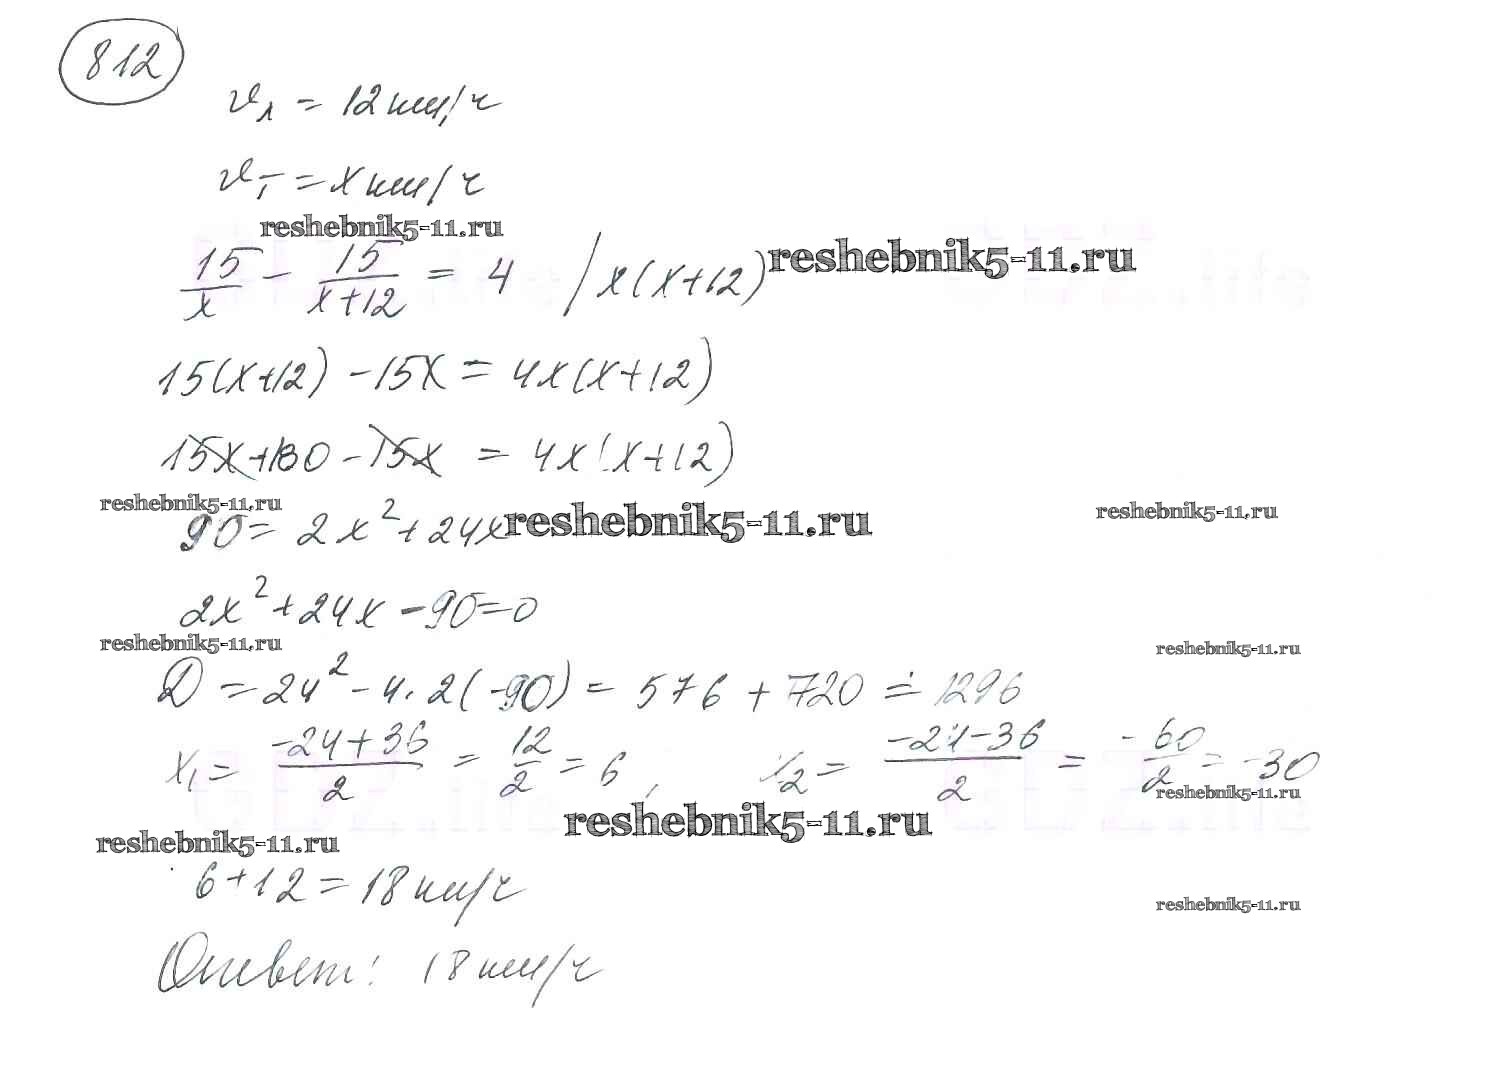 812
v л = 12 км/ч
v т = x км/ч
reshebnik5-11.ru
15/x - 15/(x+12) = 4 / x(x+12) reshebnik5-11.ru
15(x+12) - 15x = 4x(x+12)
15x+180-15x = 4x(x+12)
reshebnik5-11.ru
90 = 2x² + 24x reshebnik5-11.ru reshebnik5-11.ru
2x² + 24x - 90 = 0
reshebnik5-11.ru reshebnik5-11.ru
D = 24² - 4·2(-90) = 576 + 720 = 1296
x₁ = (-24+36)/2 = 12/2 = 6, x₂ = (-24-36)/2 = -60/2 = -30
reshebnik5-11.ru
reshebnik5-11.ru reshebnik5-11.ru
6+12 = 18 км/ч
reshebnik5-11.ru
Ответ: 18 км/ч